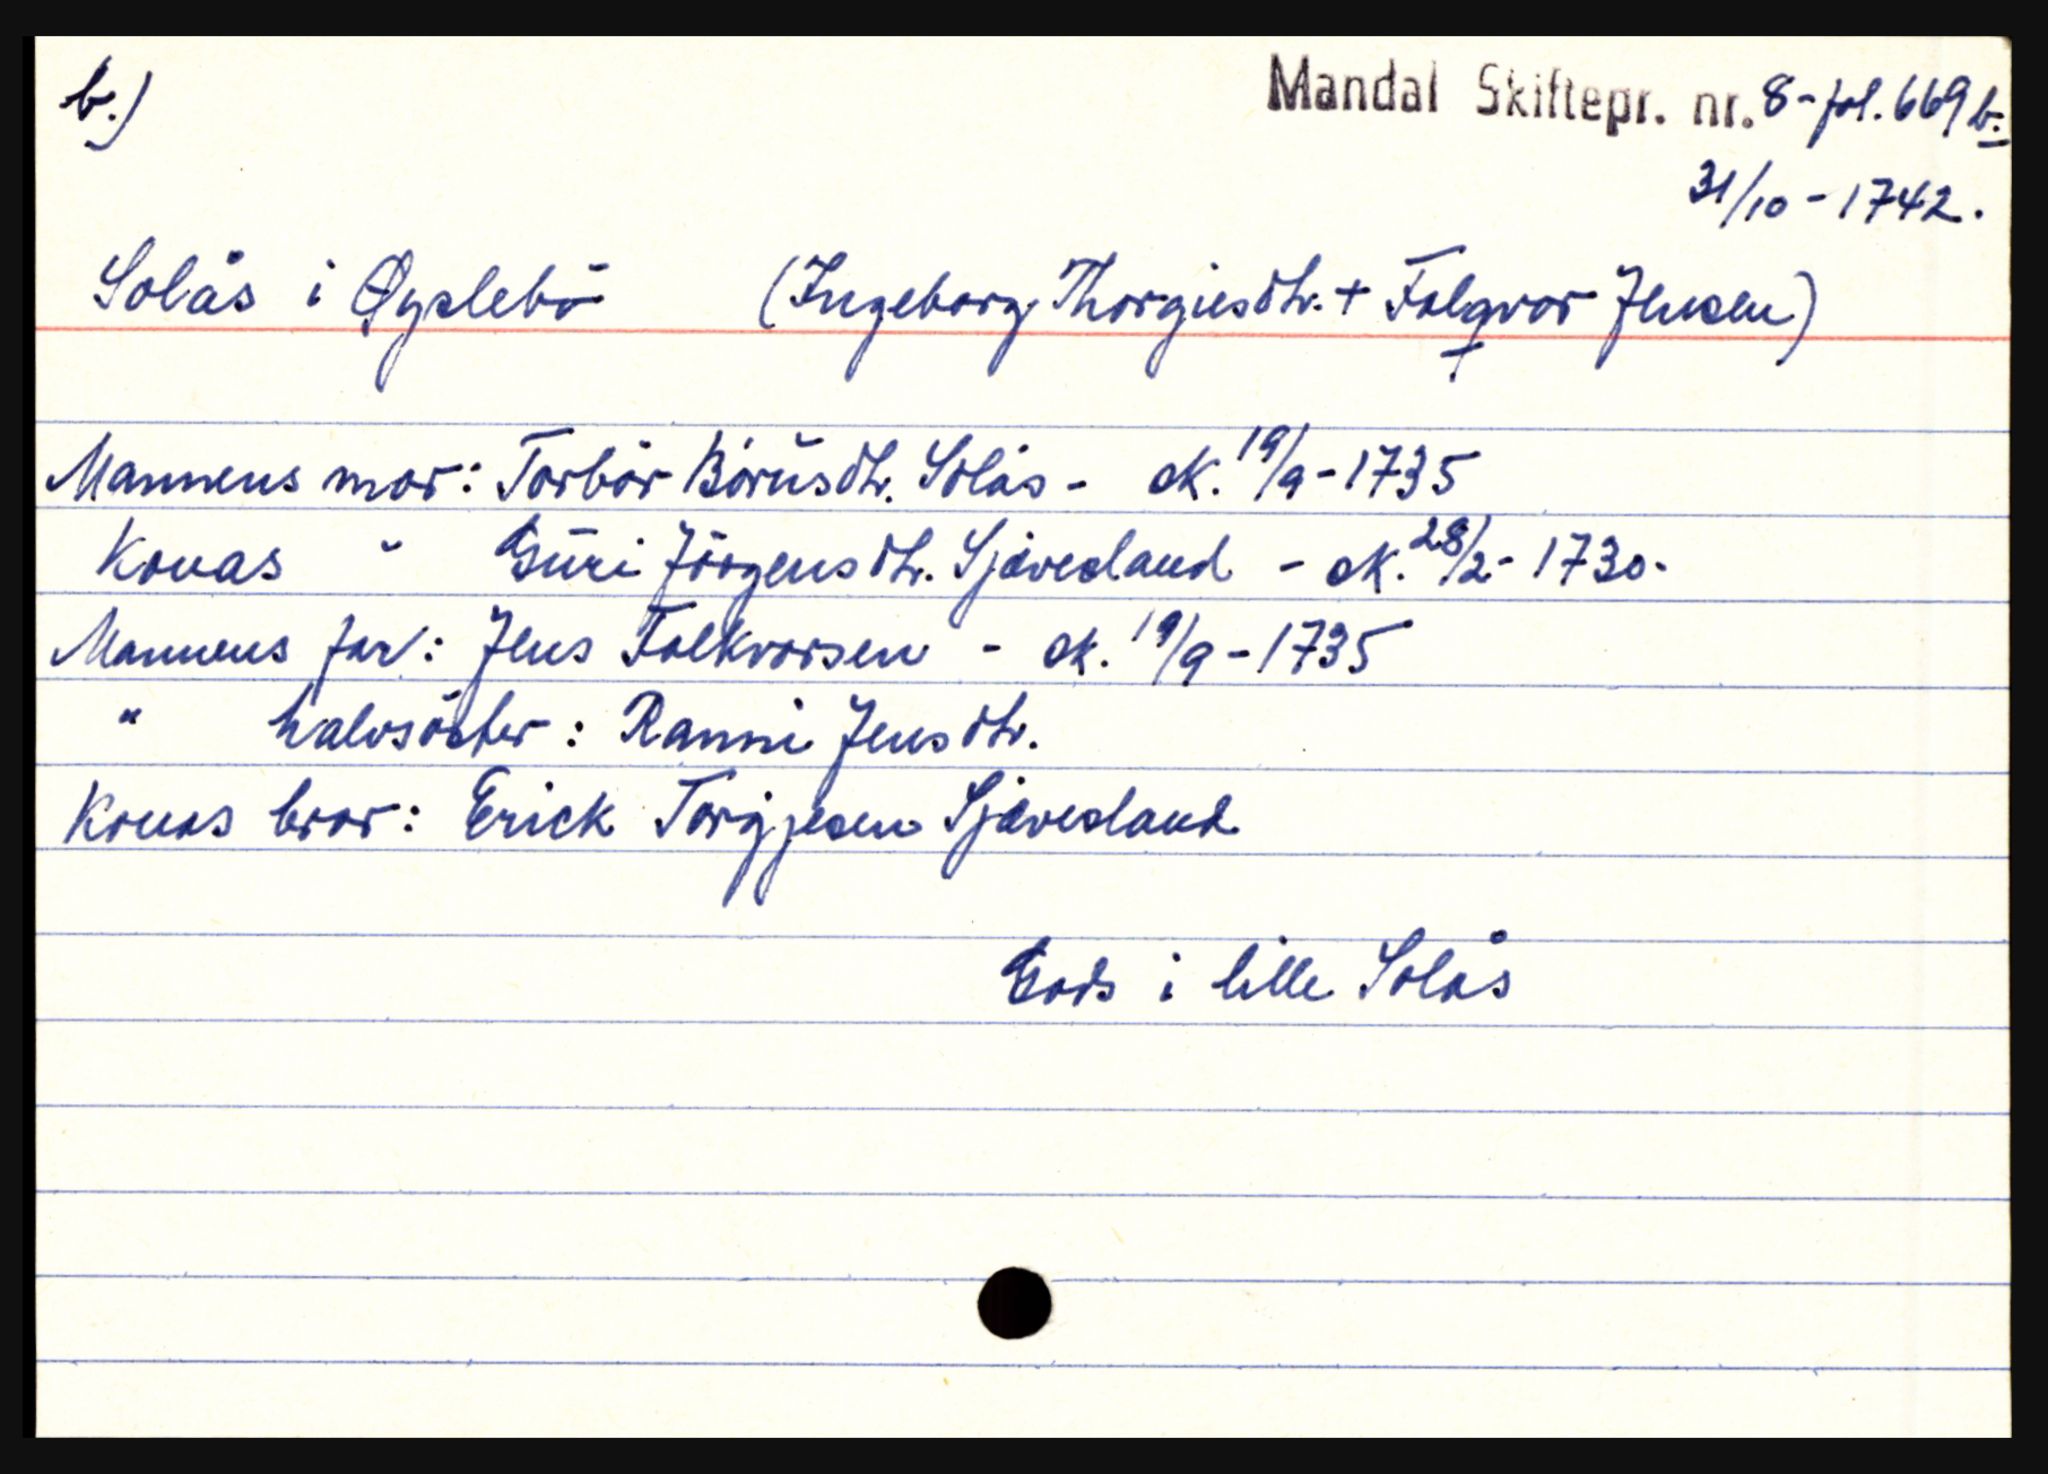 b.)
Mandal Skiftepr. nr. 8 - fol. 669 b.
31/10 - 1742.
Solås i Øyslebö (Ingeborg Thorgiesdtr. + Folqvor Jensen)
+
Mannens mor: Torbör Börusdtr. Solås - sk. 19/9 - 1735
Konas " Guri Jörgensdtr. Sjävesland - sk. 28/2 - 1730.
Mannens far: Jens Folkvorsen - sk. 19/9 - 1735
" halvsöster: Ranni Jensdtr.
Konas bror: Erick Torgjesen Sjävesland
Gods i lille Solås